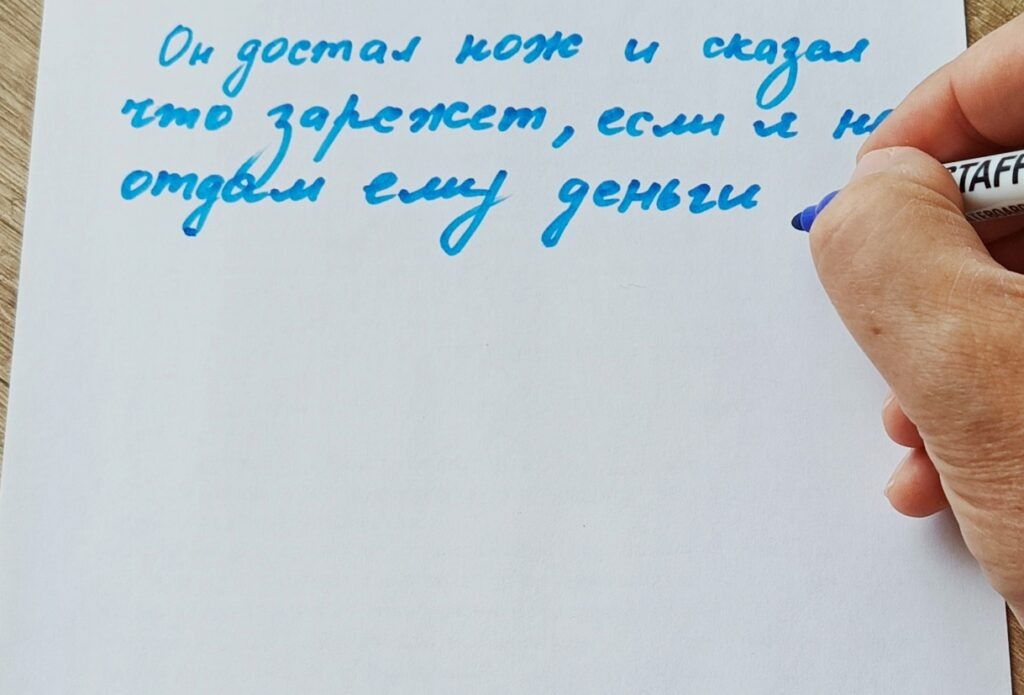 Он достал нож и сказал
что зарежет, если я
отдам ему деньги
STAFF